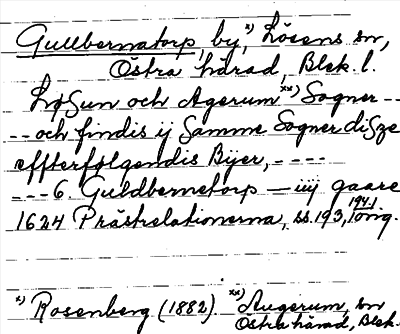 Gullbernatorp, by, x) Lösens sn,
Östra härad, Blek. l.
Løſun och Agerum xx) Sogner --
-- och findis ij Samme Sogner diſze
effterfølgendis Bÿer, ----
--- 6. Guldbernetorp — iiij gaare
1624 Prästrelationerna, ss. 193, 194.) orig.
x) Rosenberg (1882). xx) Augerum, sn
Östra härad, Blek.